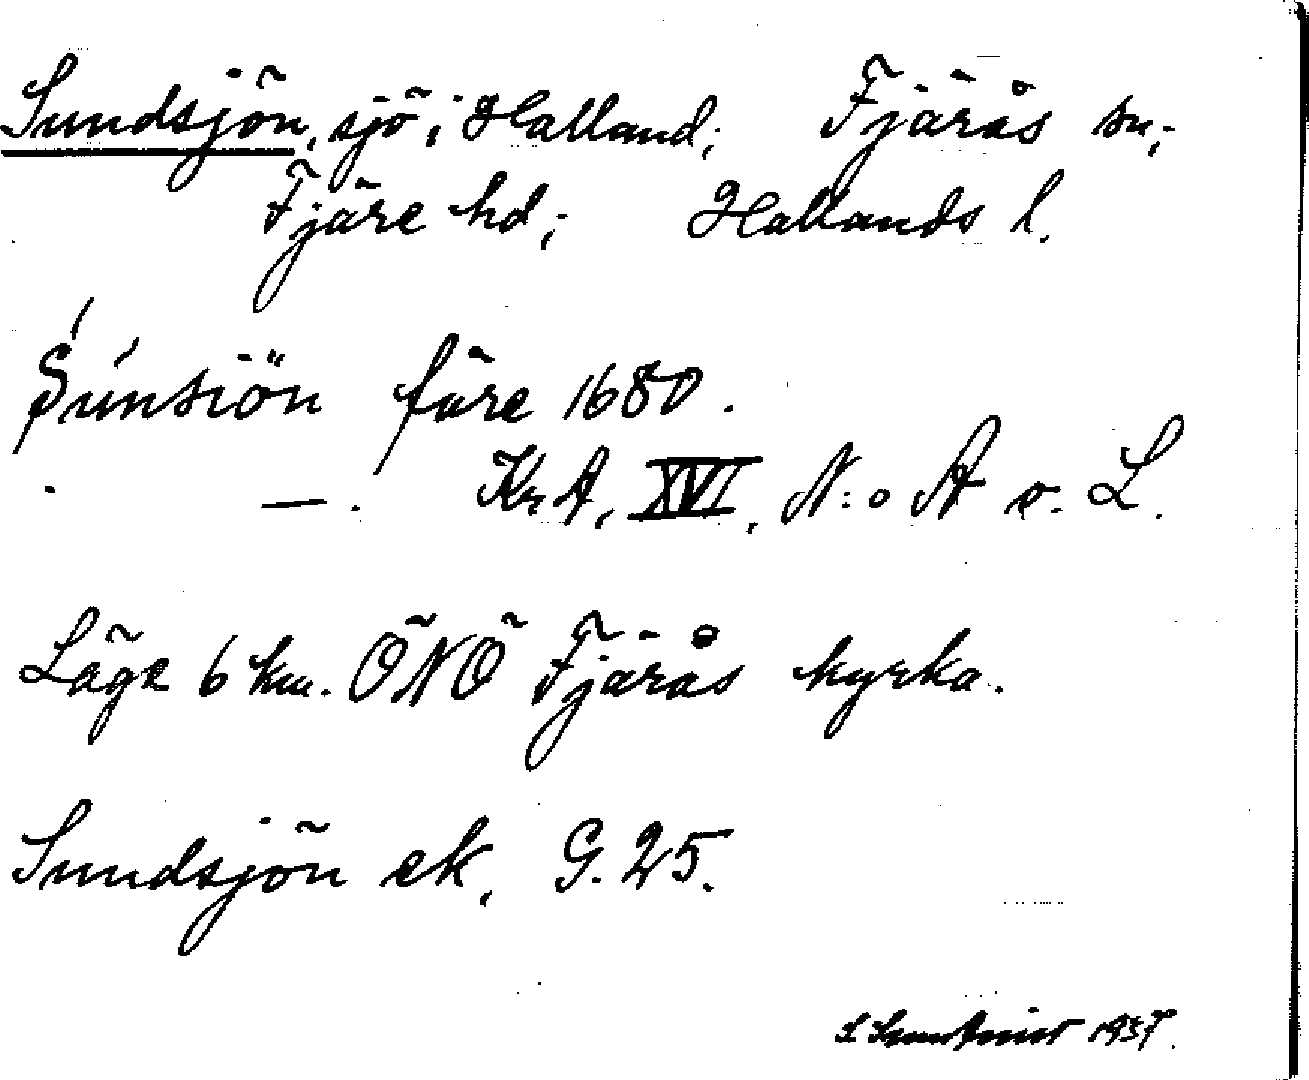 Sundsjön, sjö i Halland; Fjärås sn;
Fjäre hd; Hallands l.
Sunsiön före 1680.
— . KrA, XVI, N:o A v. L.
Läge 6 km. ÖNÖ Fjärås kyrka.
Sundsjön ek. G. 25.
1937.